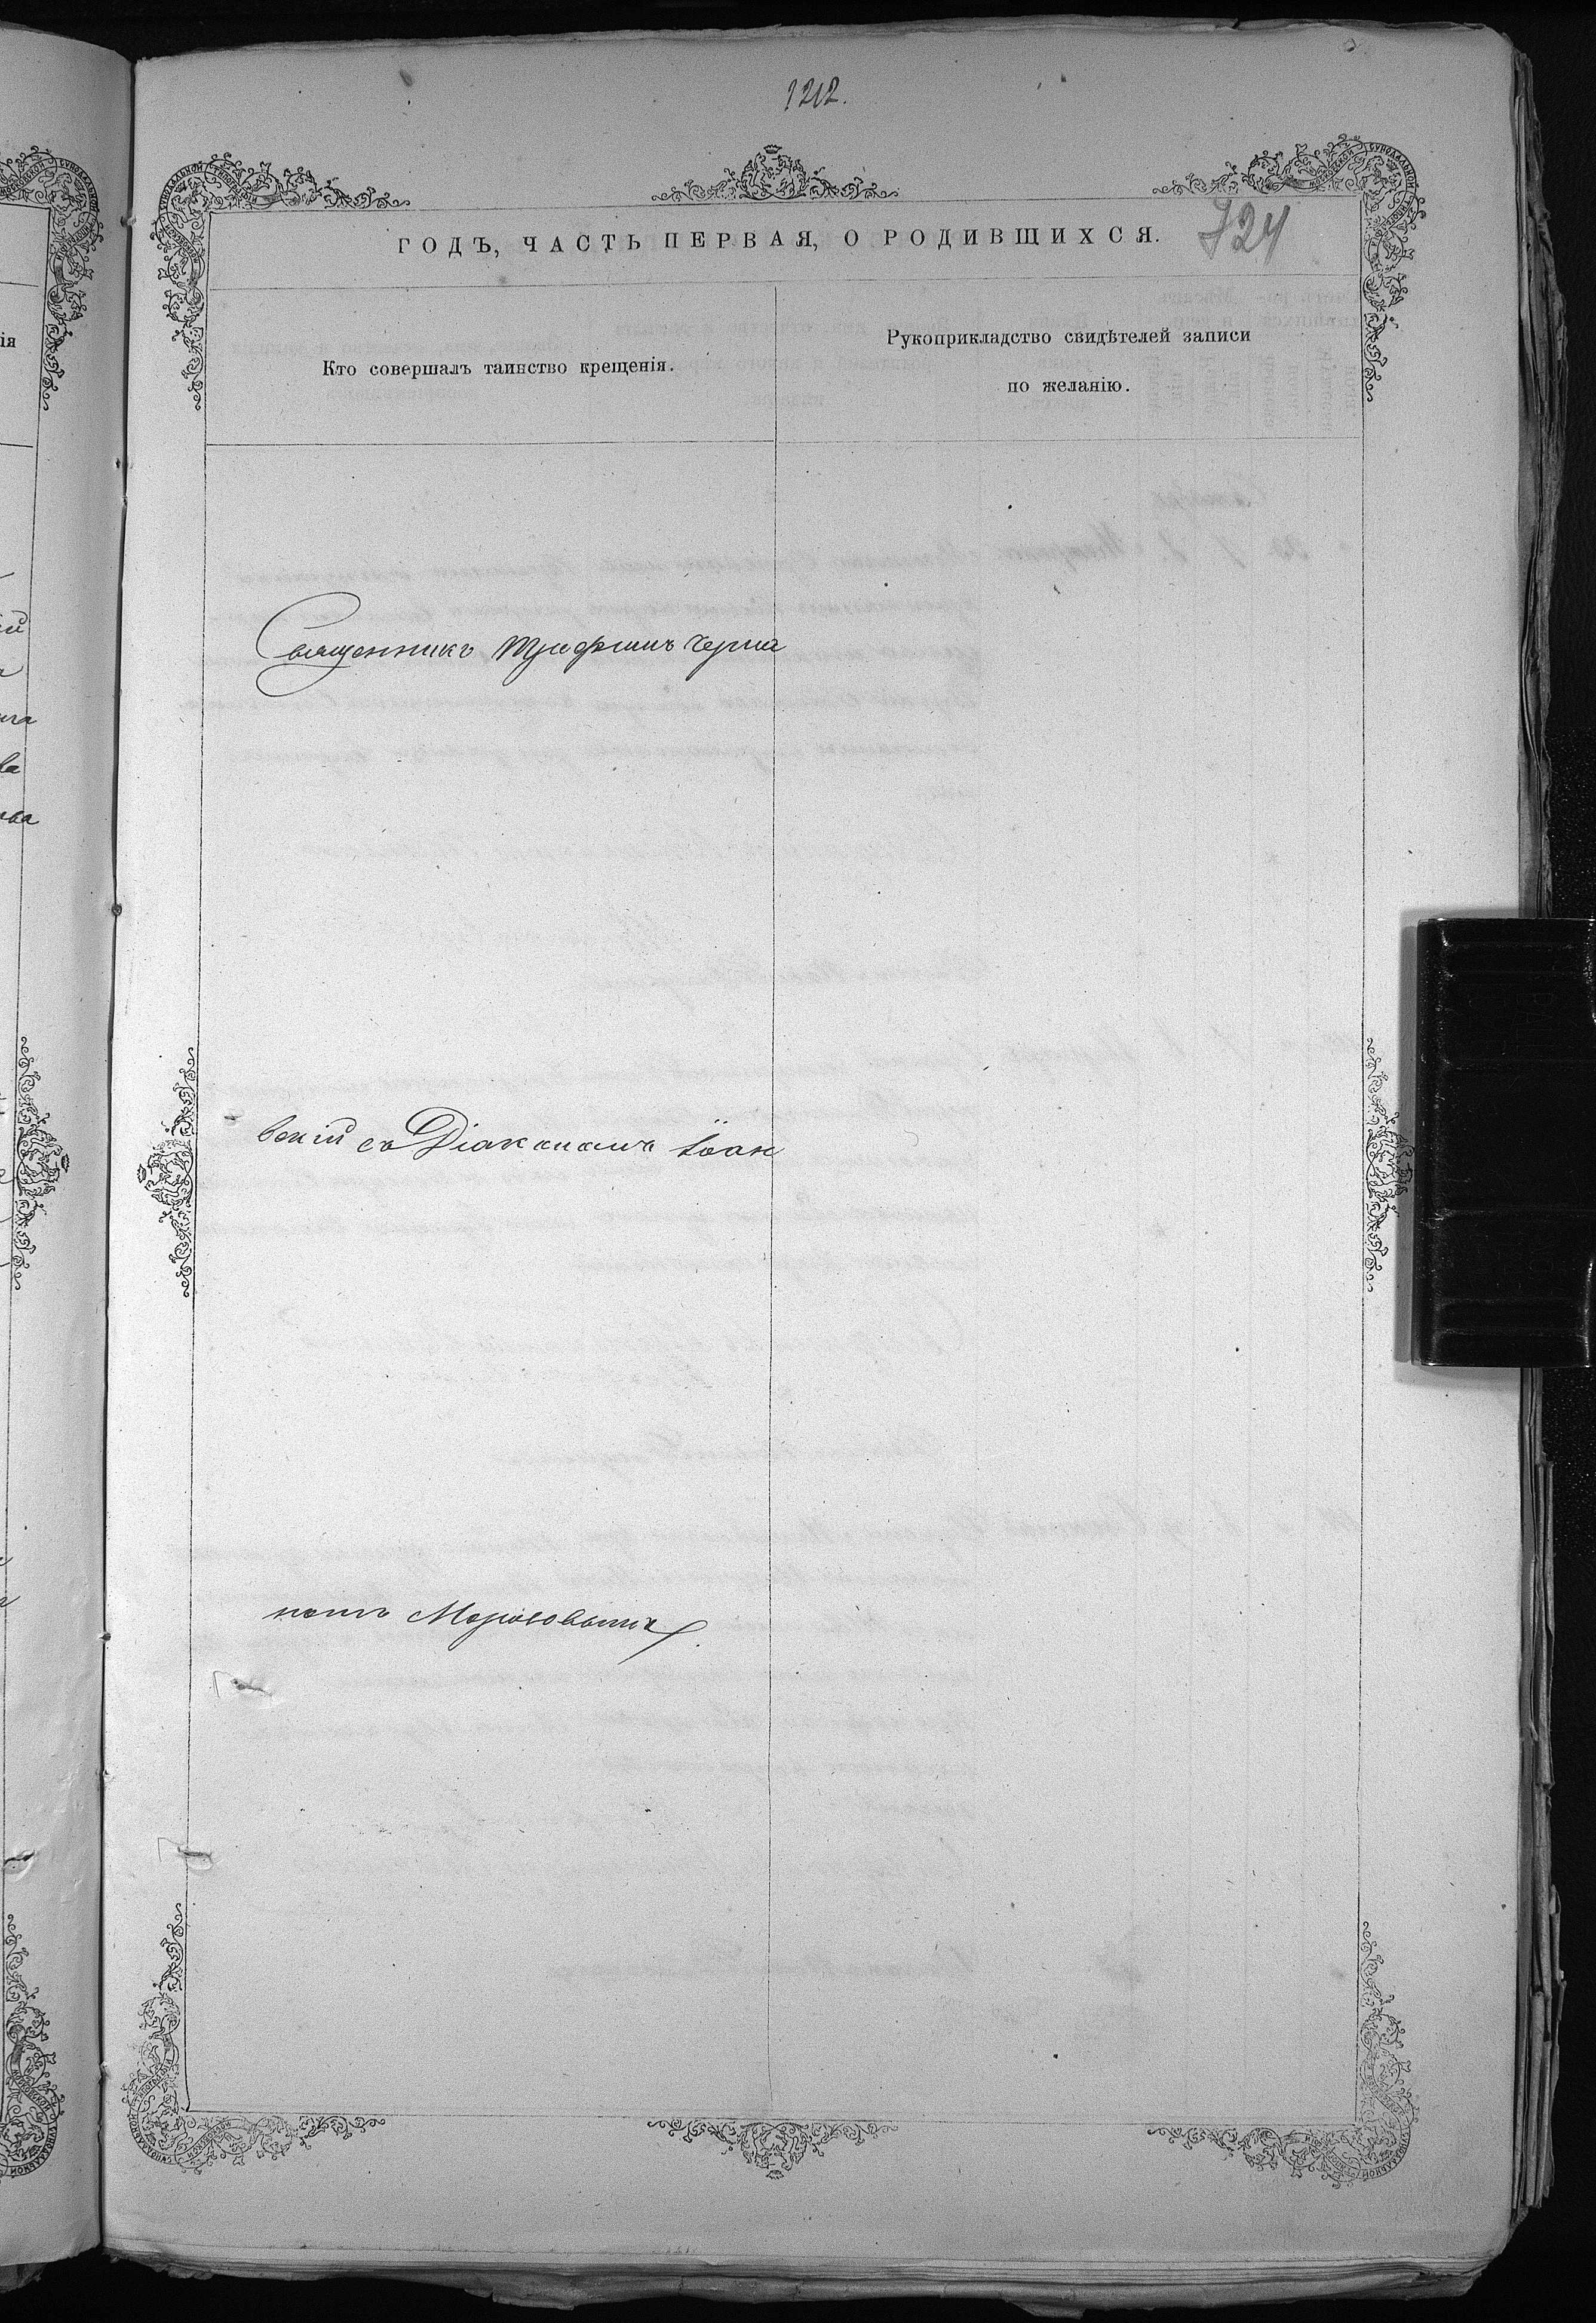 1212.
724
ГОДЪ, ЧАСТЬ ПЕРВАЯ, О РОДИВШИХСЯ.
Кто совершалъ таинство крещенія.
Рукоприкладство свидѣтелей записи
по желанію.
Священникъ Трифонъ Черня
вскій съ Діакономъ Іоан
номъ Морозовымъ.